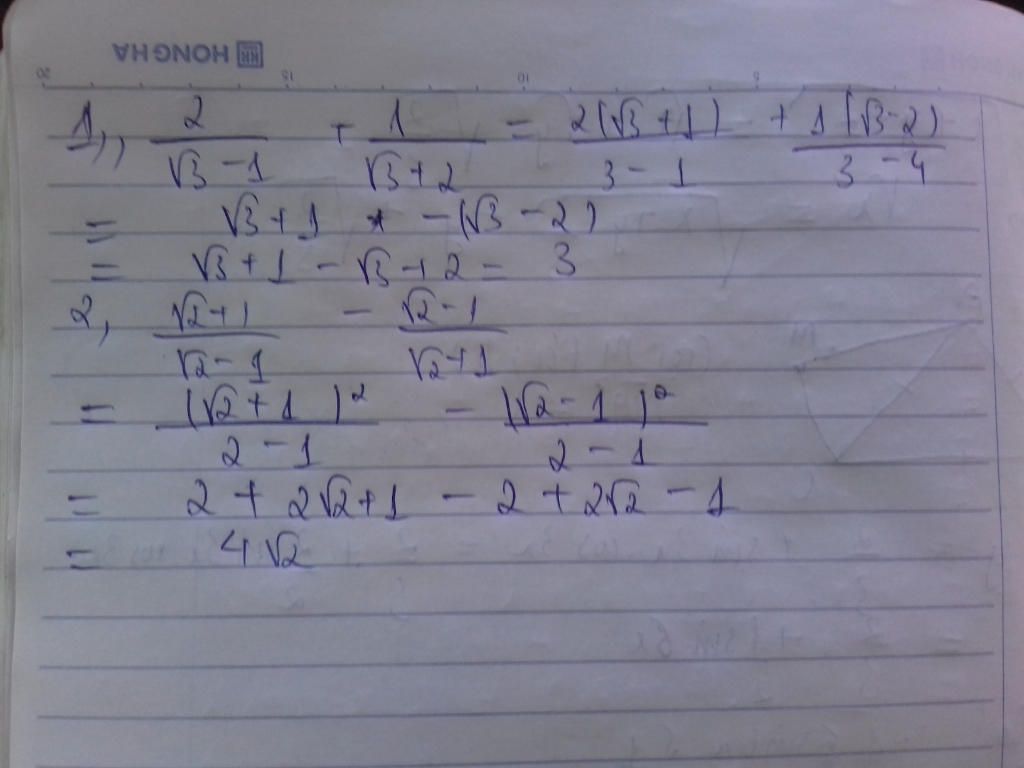 HONG HA
20 15 10 5
1,, 2/(√3 - 1) + 1/(√3 + 2) = 2(√3 + 1)/(3 - 1) + 1(√3 - 2)/(3 - 4)
= √3 + 1 - (√3 - 2)
= √3 + 1 - √3 + 2 = 3
2, (√2 + 1)/(√2 - 1) - (√2 - 1)/(√2 + 1)
= (√2 + 1)²/(2 - 1) - (√2 - 1)²/(2 - 1)
= 2 + 2√2 + 1 - 2 + 2√2 - 1
= 4√2